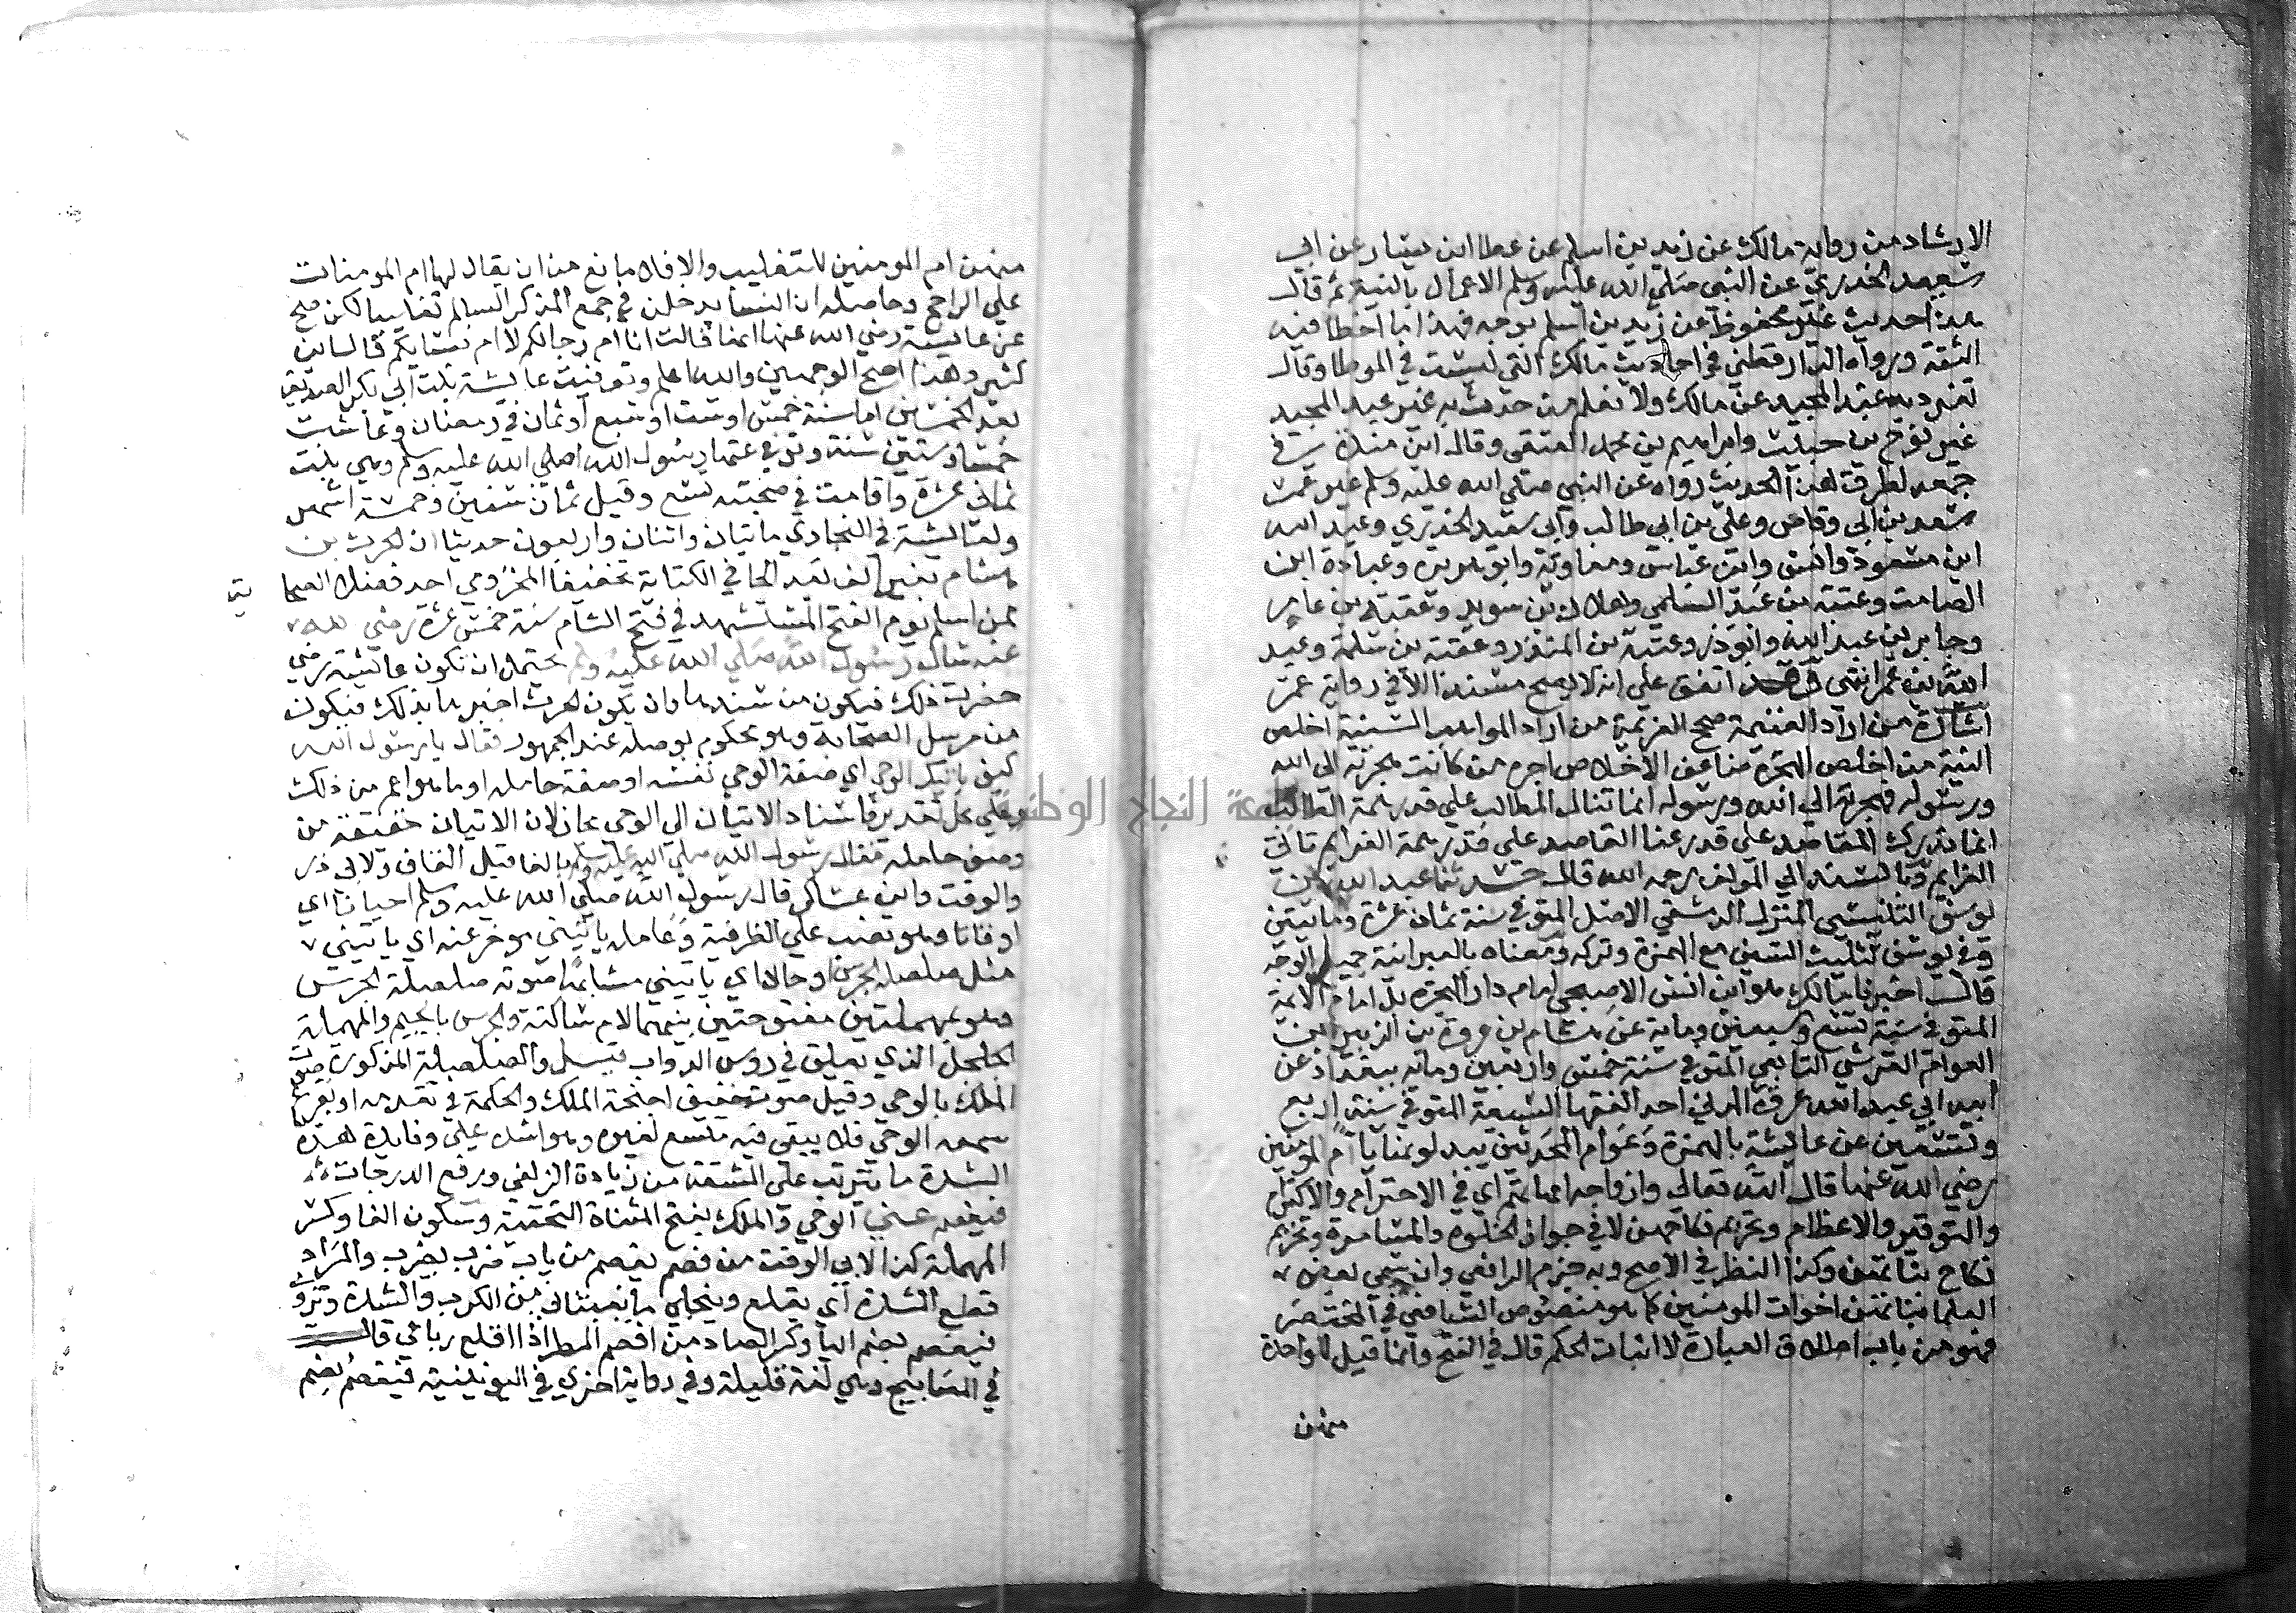 الارشاد من رواية مالك عن زيد بن اسلم عن عطا ابن يسار عن ابي
سعيد الخدري عن النبي صلي الله عليه وسلم الاعمال بالنية ثم قال
هذا حديث غير محفوظ عن زيد بن اسلم بوجه فهذا ما اخطا فيه
الثقة ورواه الدارقطني في احاديث مالك التي ليست في الموطا وقال
تفرد به عبد المجيد عن مالك ولا نعلم من حدث به غير عبد المجيد
غير نوح بن حبيب وابراهيم بن محمد العتقي وقال ابن مندة في
جمعه لطرق هذا الحديث رواه عن النبي صلي الله عليه وسلم غير عمر
سعد بن ابي وقاص وعلي بن ابي طالب وابي سعيد الخدري وعبد الله
ابن مسعود وانس وابن عباس ومعاوية وابو هريرة وعبادة ابن
الصامت وعتبة بن عبد السلمي وهلال بن سويد وعقبة بن عامر
وجابر بن عبد الله وابو ذر وعتبة بن المنذر وعقبة بن سلمة وعبد
الله بن عمر انتهي اتفق علي انه لا يصح مسندا الا في رواية عمر
اشارة من اراد الغنيمة صحح العزيمة من اراد المواهب السنية اخلص
النية من اخلص الهجرة ضاعف الاخلاص اجره من كانت هجرته الي الله
ورسوله فهجرته الي الله ورسوله انما تنال المطالب علي قدر همة الطالب
انما تدرك المقاصد علي قدر عنا القاصد علي قدر همة الغرايم تاتي
الغرايم وبالسند الي المولف رحمه الله قال حدثنا عبد الله بن
يوسف التنيسي المنزل الدمشقي الاصل المتوفي سنة ثمان عشرة ومايتين
وفي يوسف تثليث السين مع الهمزة وتركه ومعناه بالعبرانية جميل الوجه
قال اخبرنا مالك هو ابن انس الاصبحي امام دار الهجرة بل امام الايمة
المتوفي سنة تسع وسبعين وماية عن هشام بن عروة بن الزبير ابن
العوام القرشي التابعي المتوفي سنة خمس واربعين وماية ببغداد عن
ابيه ابي عبد الله عروة المدني احد الفقها السبعة المتوفي سنة اربع
وتسعين عن عايشة بالهمزة وعوام المحدثين يبدلونها يا ام المومنين
رضي الله عنها قال الله تعالي وازواجه امهاتهم اي في الاحترام والاكرام
والتوقير والاعظام وتحريم نكاحهن لا في جواز الخلوة والمسافرة وتحريم
نكاح بناتهن وكذا النظر في الاصح وبه جزم الرافعي وان سمي بعض
العلما بناتهن اخوات المومنين كما هو منصوص الشافعي في المختصر
فهو من باب اطلاق العبارة لا اثبات الحكم قال في الفتح وانما قيل للواحدة
منهن
منهن ام المومنين للتغليب والا فلا مانع من ان يقال لها ام المومنات
علي الراجح وحاصله ان النسا يدخلن في جمع المذكر السالم تغليبا لكن صح
عن عايشة رضي الله عنها انها قالت انا ام رجالكم لا ام نسايكم قال ابن
كثير وهذا اصح الوجهين والله اعلم وتوفيت عايشة بنت ابي بكر الصديق
بعد الخمسين اما سنة خمس او ست او سبع او ثمان في رمضان وعاشت
خمسا وستين سنة وتوفي عنها رسول الله صلي الله عليه وسلم وهي بنت
ثماني عشرة واقامت في صحبته تسع وقيل ثمان سنين وخمسة اشهر
ولعايشة في البخاري مايتان واثنان واربعون حديثا ان الحرث بن
هشام بغير الف بعد الحا في الكتابة تخفيفا المخزومي احد فضلا الصحا
بة
ممن اسلم يوم الفتح المستشهد في فتح الشام سنة خمس عشرة رضي الله
عنه سال رسول الله صلي الله عليه وسلم يحتمل ان تكون عايشة رضي
حضرت ذلك فيكون من مسندها وان يكون الحرث اخبرها بذلك فيكون
من مرسل الصحابة وهو محكوم بوصله عند الجمهور فقال يا رسول الله
كيف ياتيك الوحي اي صفة الوحي نفسه او صفة حامله او ما هو اعم من ذلك
وعلي كل تقدير فاسناد الاتيان الي الوحي مجاز لان الاتيان حقيقة من
وصف حامله فقال رسول الله صلي الله عليه وسلم بالفا قبل القاف ولابي ذر
والوقت وابن عساكر قال رسول الله صلي الله عليه وسلم احيانا اي
اوقاتا وهو نصب علي الظرفية وعامله ياتيني موخر عنه اي ياتيني
مثل صلصلة الجرس او حالا اي ياتيني مشابها صوته صلصلة الجرس
وهو بمهملتين مفتوحتين بينهما لام ساكنة والجرس بالجيم والمهملة
الجلجل الذي يعلق في روس الدواب قيل والصلصلة المذكورة صوت
الملك بالوحي وقيل صوت حفيف اجنحة الملك والحكمة في تقدمه ان يقرع
سمعه الوحي فلا يبقي فيه متسع لغيره وهو اشده علي وفايدة هذه
الشدة ما يترتب علي المشقة من زيادة الزلفي ورفع الدرجات
فيفصم عني الوحي والملك بفتح المثناة التحتية وسكون الفا وكسر
المهملة كذا لابي الوقت من فصم يفصم من باب ضرب يضرب والمراد
قطع الشدة اي يقلع وينجلي ما يغشاني من الكرب والشدة ويروي
فيفصم بضم اليا وكسر الصاد من افصم المطر اذا اقلع رباعي قال
في المصابيح وهي لغة قليلة وفي رواية اخري في اليونينية فيفصم بضم
جامعة النجاح الوطنية